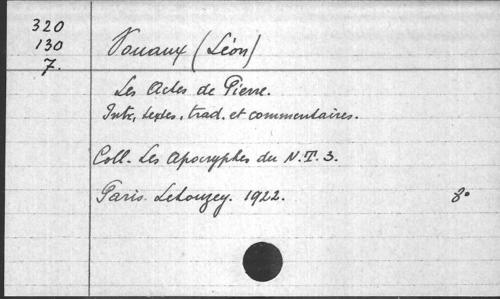 320
130
7.
Vouaux (Léon)
Les Actes de Pierre.
Intr, textes, trad. et commentaires.
Coll. Les Apocryphes du N.T. 3.
Paris. Letouzey. 1922. 8°